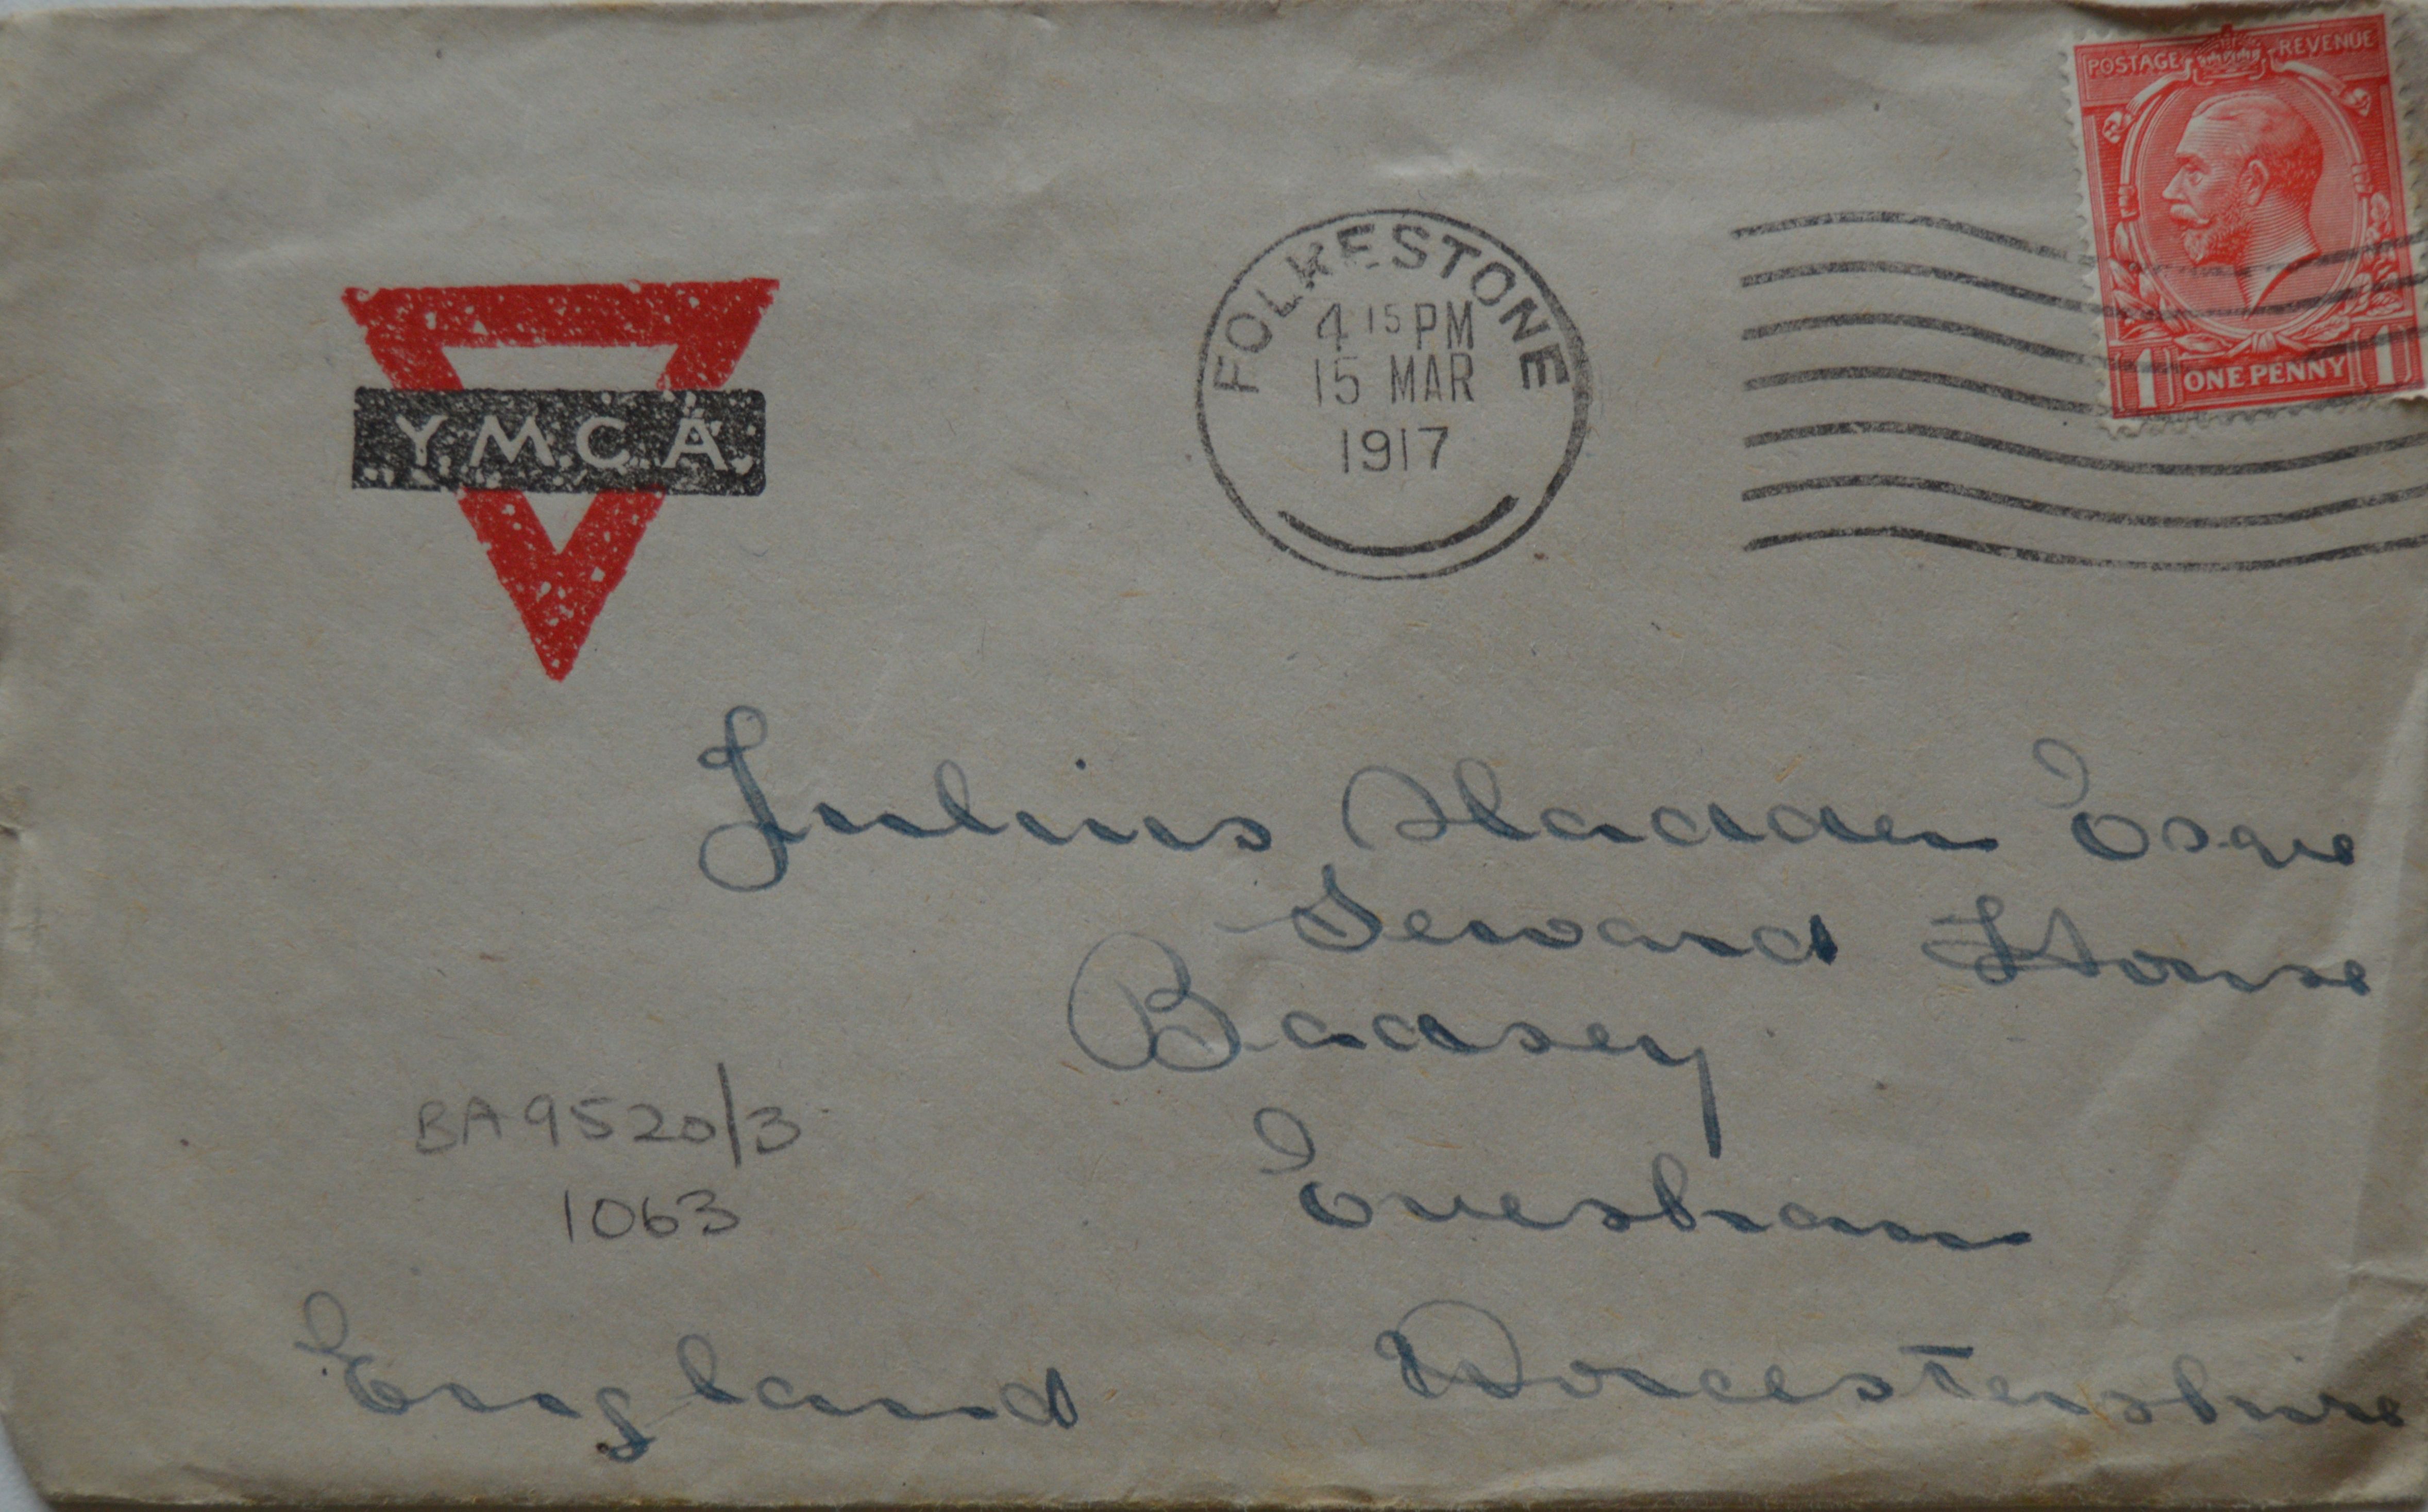 POSTAGE REVENUE
ONE PENNY
1 1
FOLKESTONE
4 15 PM
15 MAR
1917
Y.M.C.A.
Julius Sladden Esqre
Seward House
Badsey
Evesham
Worcestershire
England
BA9520/3
1063